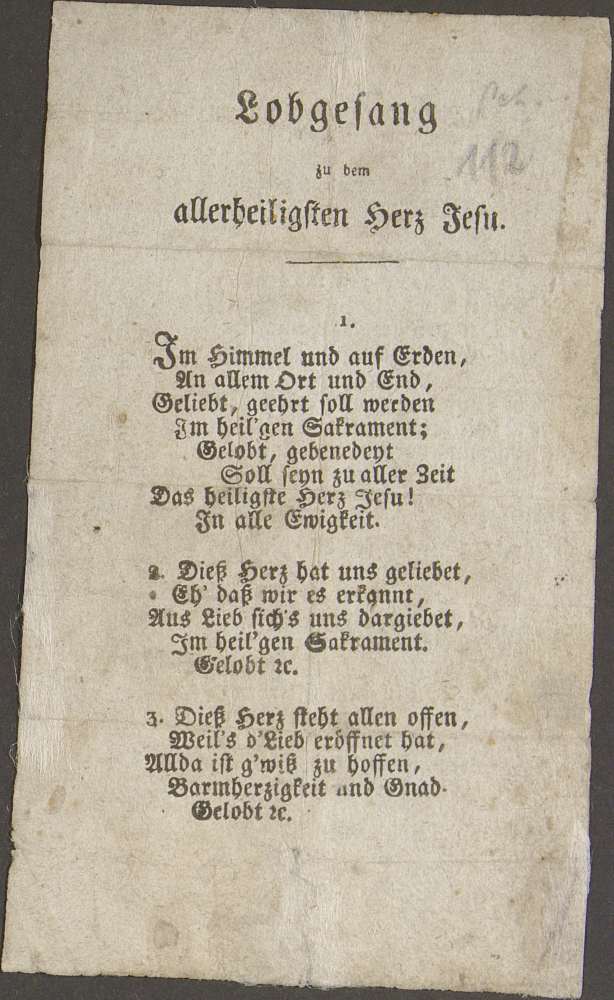 Lobgesang
112
zu dem
allerheiligsten Herz Jesu.
1.
Im Himmel und auf Erden,
An allem Ort und End,
Geliebt, geehrt soll werden
Im heil'gen Sakrament;
Gelobt, gebenedeyt
Soll seyn zu aller Zeit
Das heiligste Herz Jesu!
In alle Ewigkeit.
2. Dieß Herz hat uns geliebet,
Eh' daß wir es erkannt,
Aus Lieb sich's uns dargiebet,
Im heil'gen Sakrament.
Gelobt ꝛc.
3. Dieß Herz steht allen offen,
Weil's d'Lieb eröffnet hat,
Allda ist g'wiß zu hoffen,
Barmherzigkeit und Gnad.
Gelobt ꝛc.